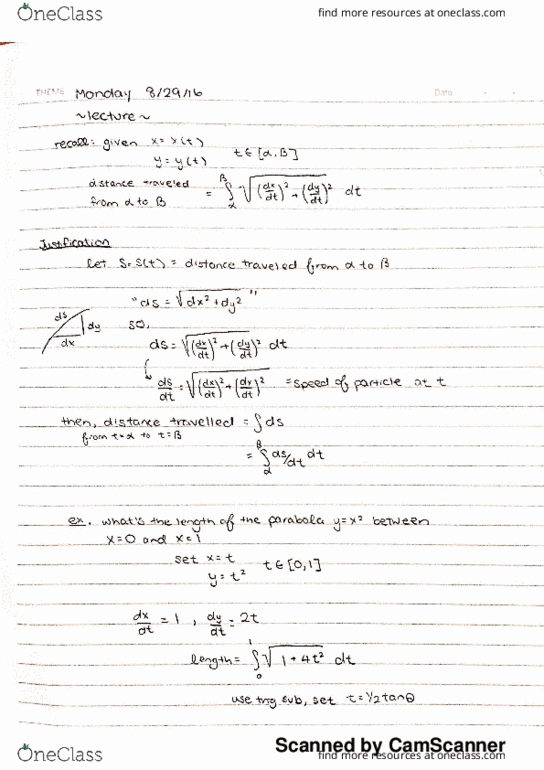 OneClass
find more resources at oneclass.com
THEME Monday 8/29/16 Date
~lecture~
recall: given x = x(t)
y = y(t) t ∈ [α, β]
distance traveled
from α to β = ∫_α^β √((dx/dt)² + (dy/dt)²) dt
Justification
Let S = S(t) = distance traveled from α to β
"ds = √(dx² + dy²)"
ds dy dx
so,
ds = √((dx/dt)² + (dy/dt)²) dt
ds/dt = √((dx/dt)² + (dy/dt)²) = speed of particle at t
then, distance travelled = ∫ds
from t=α to t=β
= ∫_α^β ds/dt dt
ex. what's the length of the parabola y=x² between
x=0 and x=1
set x = t
y = t² t ∈ [0,1]
dx/dt = 1, dy/dt = 2t
length = ∫_0^1 √(1 + 4t²) dt
use trig sub, set t = 1/2 tanθ
Scanned by CamScanner
OneClass
find more resources at oneclass.com